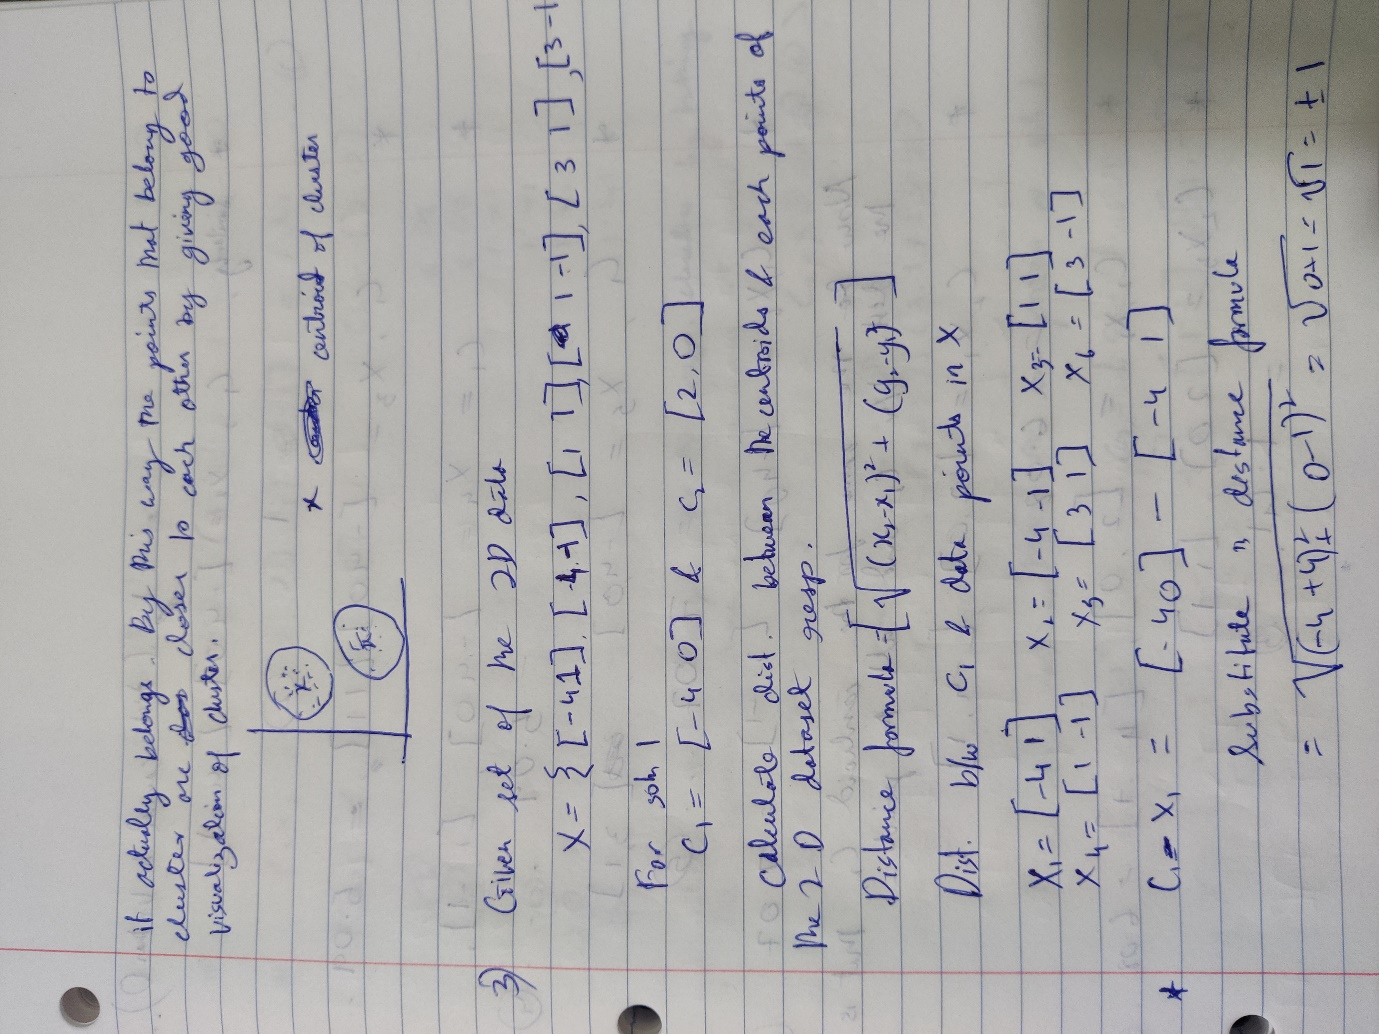 it actually belongs. By this way the points that belong to
cluster are closer to each other by giving good
visualization of cluster.
x centroid of cluster
x
x
3) Given set of the 2D data
X = { [-4 1], [-4 -1], [1 1], [1 -1], [3 1], [3 -1
For soln 1
C₁ = [-4 0] & C₂ = [2, 0]
Calculate dist. between the centroids & each points of
the 2-D dataset resp.
Distance formula = [√(x₂-x₁)² + (y₂-y₁)²]
Dist. b/w C₁ & data points in X
X₁ = [-4 1] X₂ = [-4 -1] X₃ = [1 1]
X₄ = [1 -1] X₅ = [3 1] X₆ = [3 -1]
* C₁ - X₁ = [-4 0] - [-4 1]
Substitute in distance formula
= √(-4+4)² + (0-1)² = √0+1 = √1 = ± 1